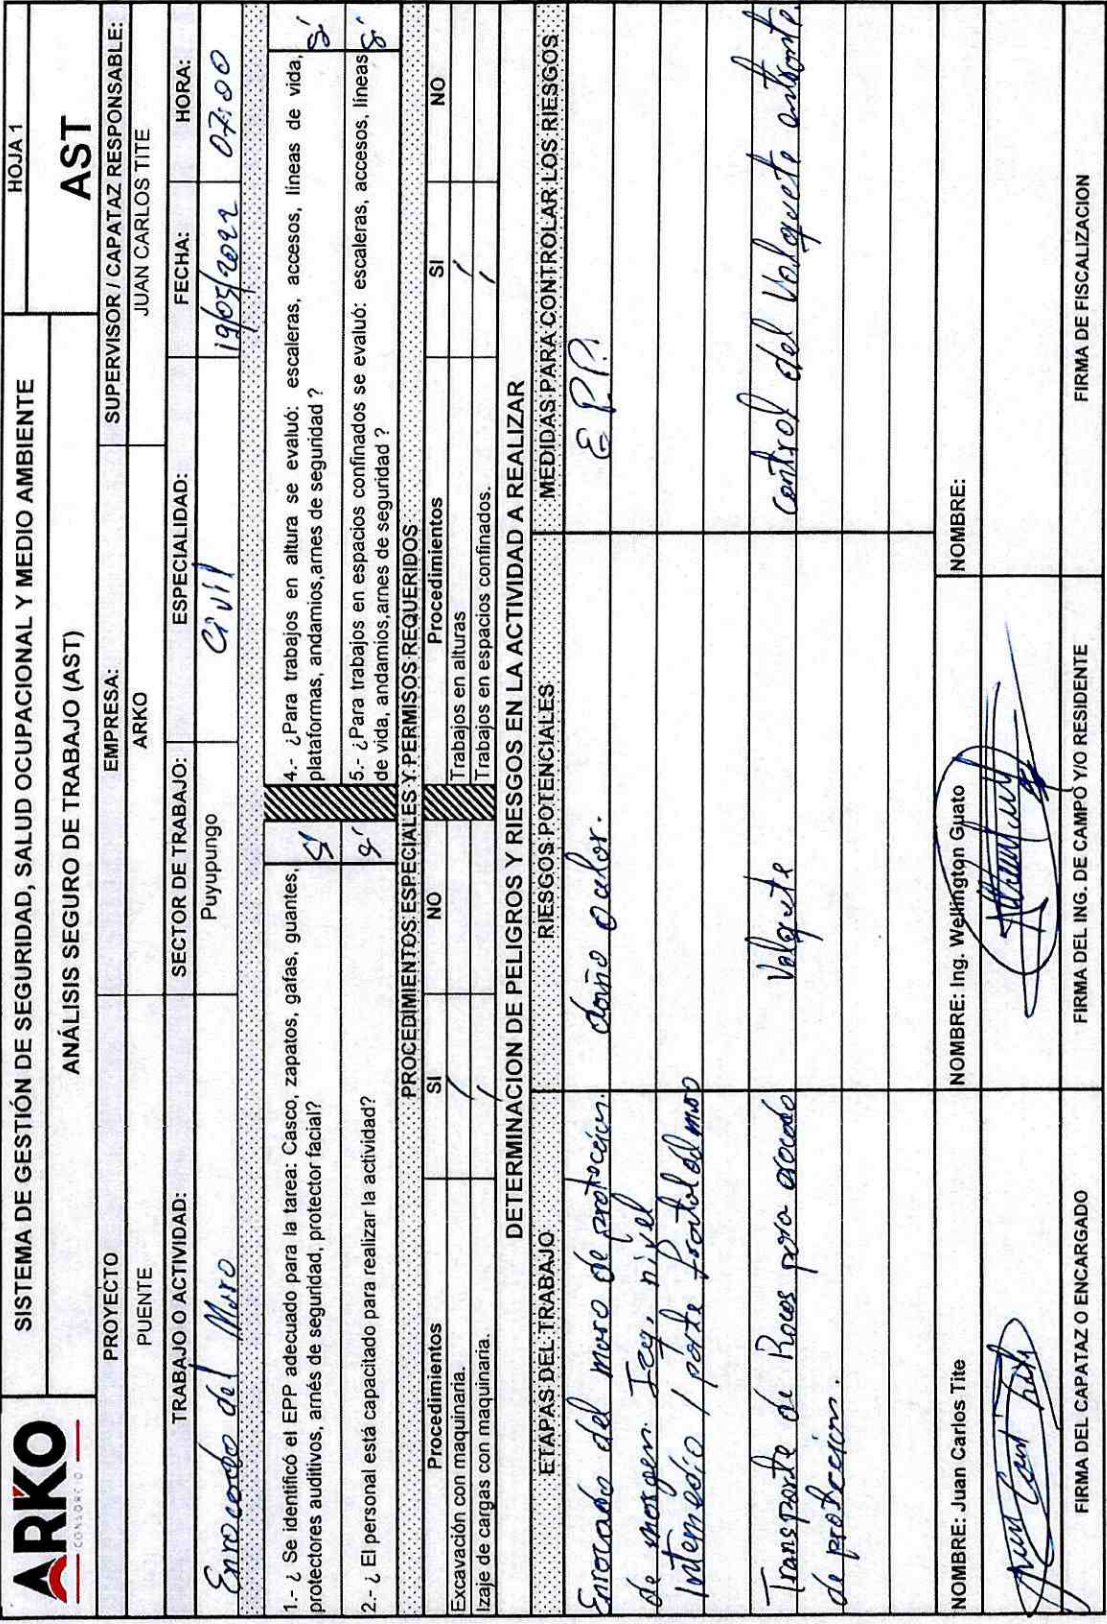 ARKO
CONSORCIO
SISTEMA DE GESTIÓN DE SEGURIDAD, SALUD OCUPACIONAL Y MEDIO AMBIENTE
HOJA 1
ANÁLISIS SEGURO DE TRABAJO (AST)
AST
PROYECTO
EMPRESA:
SUPERVISOR / CAPATAZ RESPONSABLE:
PUENTE
ARKO
JUAN CARLOS TITE
TRABAJO O ACTIVIDAD:
SECTOR DE TRABAJO:
ESPECIALIDAD:
FECHA:
HORA:
Enrocado del Muro
Puyupungo
Civil
19/05/2022
07:00
1.- ¿ Se identificó el EPP adecuado para la tarea: Casco, zapatos, gafas, guantes,
protectores auditivos, arnés de seguridad, protector facial?
Si
4.- ¿Para trabajos en altura se evaluó: escaleras, accesos, líneas de vida,
plataformas, andamios,arnes de seguridad ?
Si
2.- ¿ El personal está capacitado para realizar la actividad?
Si
5.- ¿Para trabajos en espacios confinados se evaluó: escaleras, accesos, líneas
de vida, andamios,arnes de seguridad ?
Si
PROCEDIMIENTOS ESPECIALES Y PERMISOS REQUERIDOS
Procedimientos
SI
NO
Procedimientos
SI
NO
Excavación con maquinaria.
/
Trabajos en alturas
/
Izaje de cargas con maquinaria.
/
Trabajos en espacios confinados.
/
DETERMINACION DE PELIGROS Y RIESGOS EN LA ACTIVIDAD A REALIZAR
ETAPAS DEL TRABAJO
RIESGOS POTENCIALES
MEDIDAS PARA CONTROLAR LOS RIESGOS
Enrocado del muro de protección.
E.P.P.
de margen Izq, nivel
Intermedio / parte frontal del muro
Transporte de Rocas para
Volquete
control del Volquete
de protección.
NOMBRE: Juan Carlos Tite
NOMBRE: Ing. Wellington Guato
NOMBRE:
Juan Carlos Tite
FIRMA DEL CAPATAZ O ENCARGADO
FIRMA DEL ING. DE CAMPO Y/O RESIDENTE
FIRMA DE FISCALIZACION